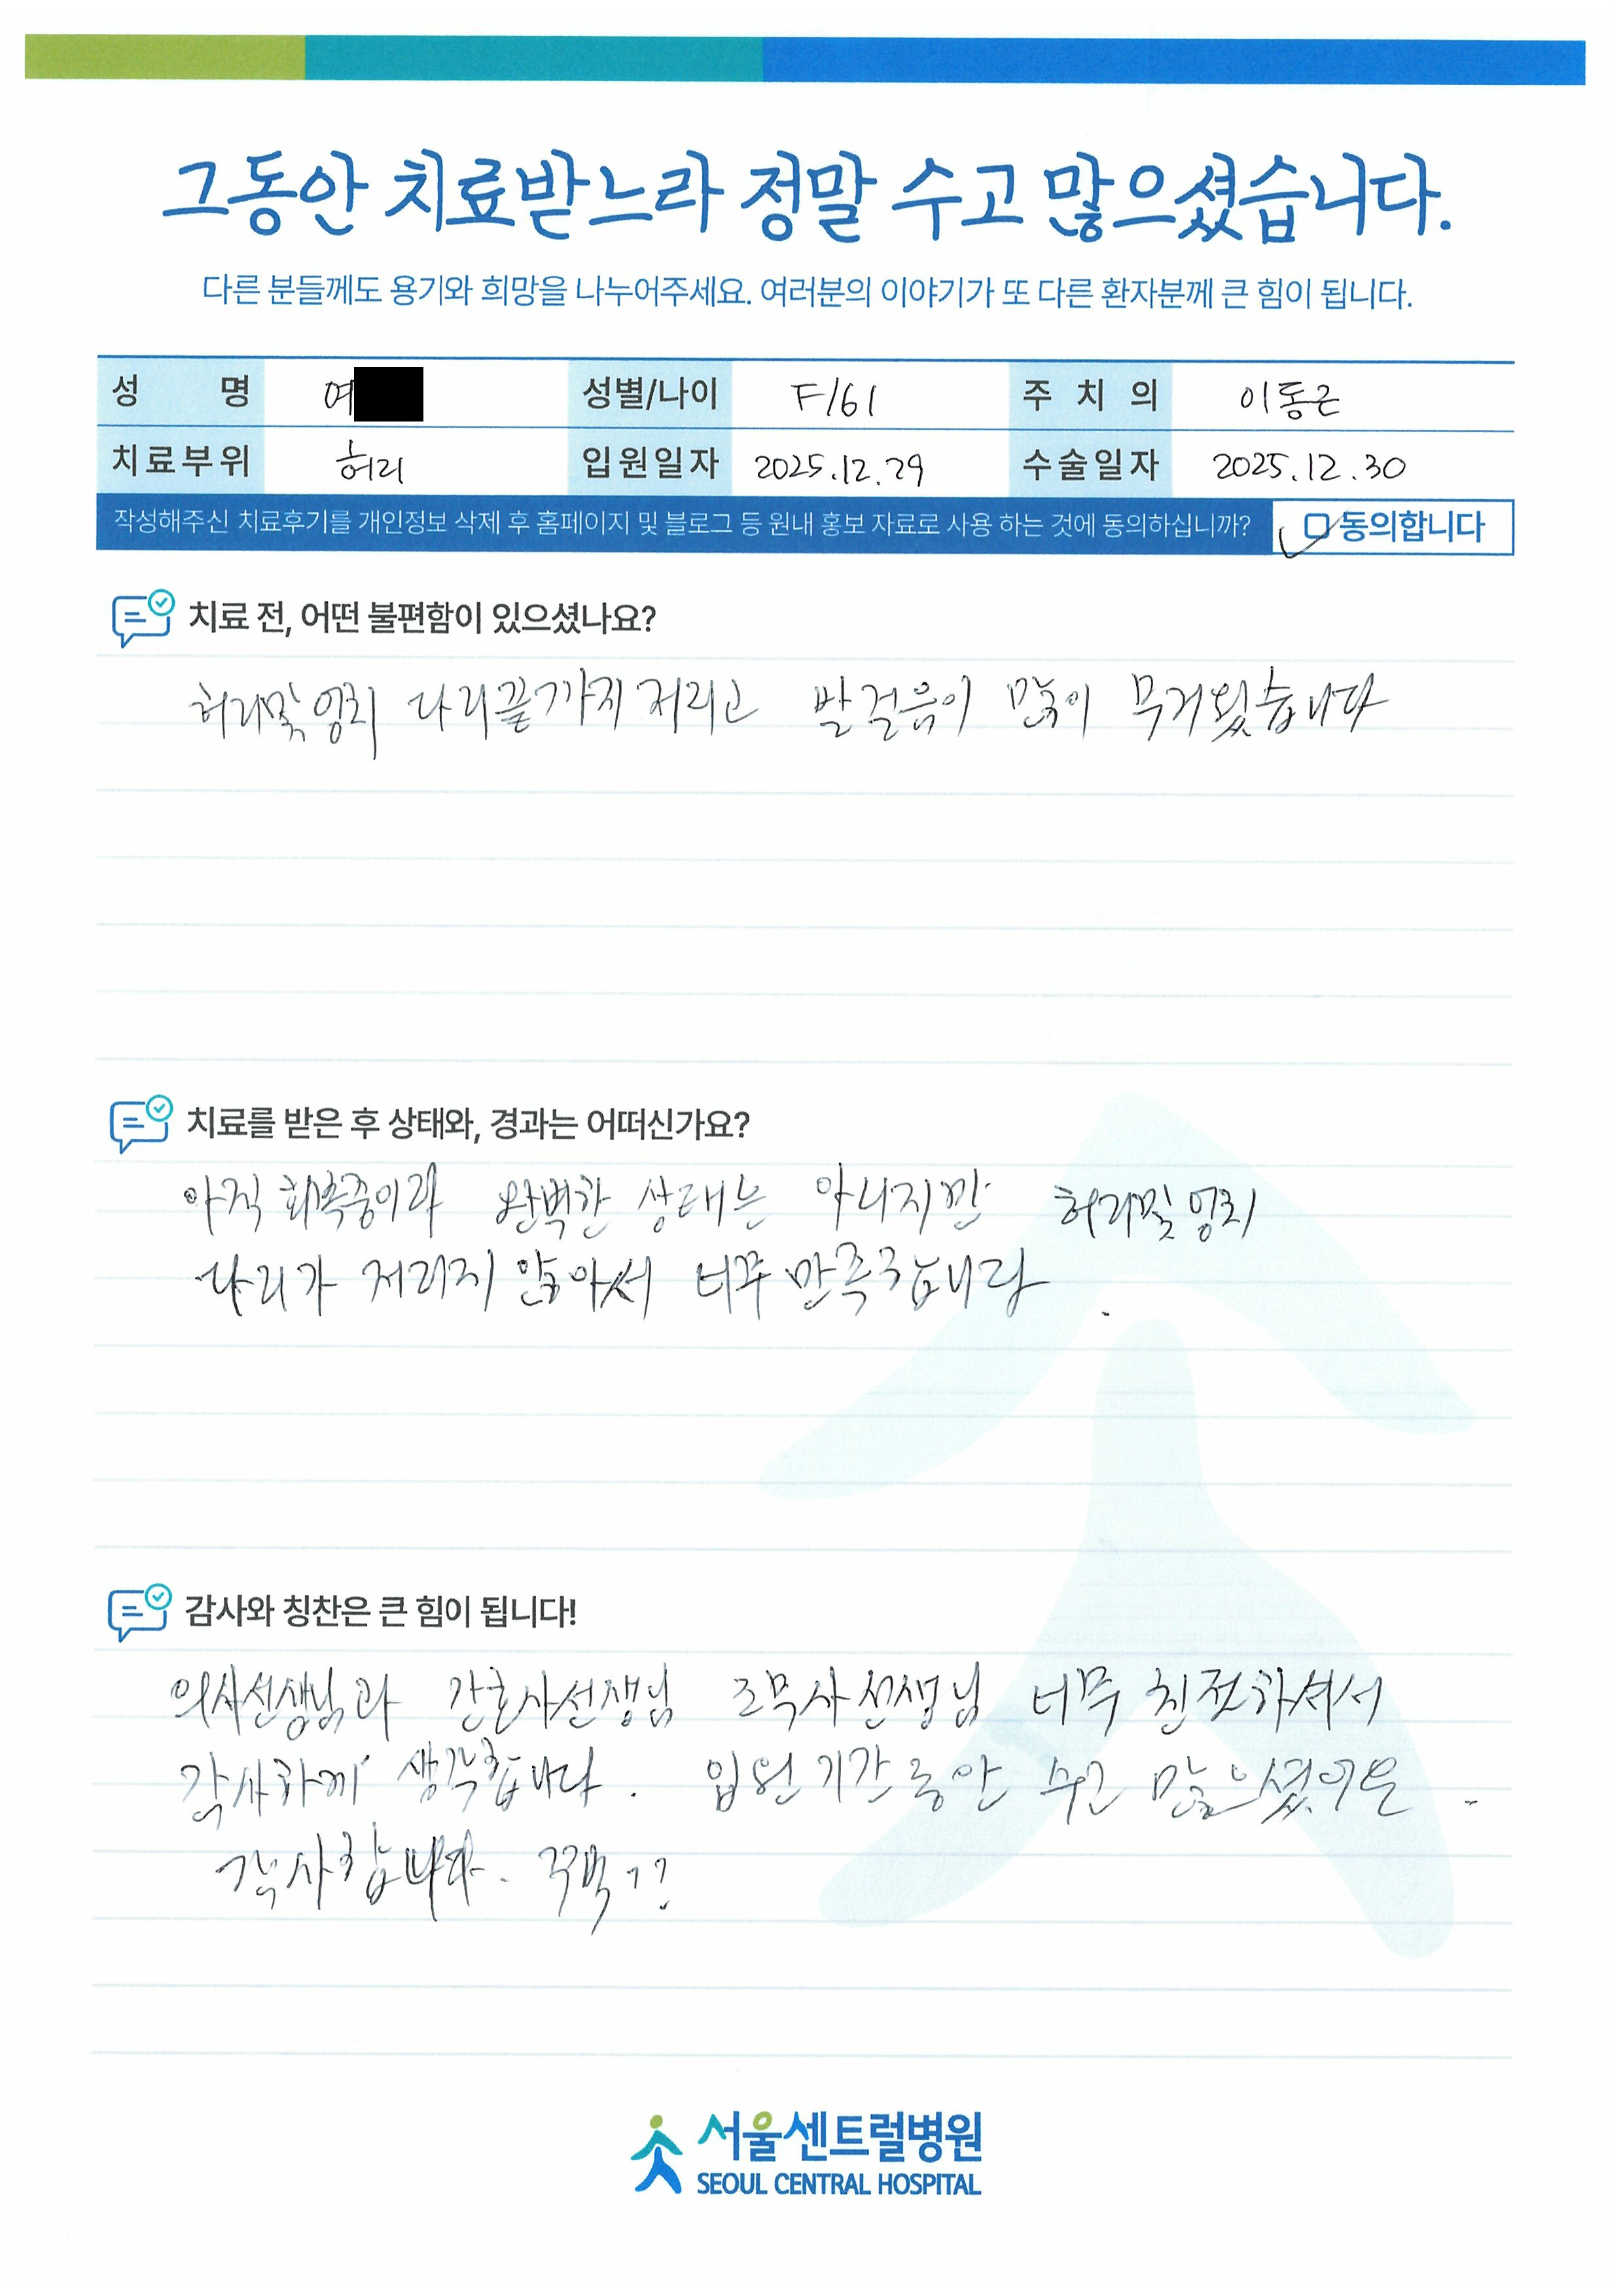 그동안 치료받느라 정말 수고 많으셨습니다.
다른 분들께도 용기와 희망을 나누어주세요. 여러분의 이야기가 또 다른 환자분께 큰 힘이 됩니다.
성 명 여 성별/나이 F/61 주 치 의 이동근
치료부위 허리 입원일자 2025.12.29 수술일자 2025.12.30
작성해주신 치료후기를 개인정보 삭제 후 홈페이지 및 블로그 등 원내 홍보 자료로 사용 하는 것에 동의하십니까? 동의합니다
치료 전, 어떤 불편함이 있으셨나요?
허리및 엉치 다리끝까지 저리고 발걸음이 많이 무거웠습니다
치료를 받은 후 상태와, 경과는 어떠신가요?
아직 회복중이라 완벽한 상태는 아니지만 허리및 엉치
다리가 저리지 않아서 너무 만족합니다.
감사와 칭찬은 큰 힘이 됩니다!
의사선생님과 간호사선생님 조무사선생님 너무 친절하셔서
감사하게 생각합니다. 입원기간동안 수고 많으셨어요.
감사합니다. 꾸벅
서울센트럴병원
SEOUL CENTRAL HOSPITAL